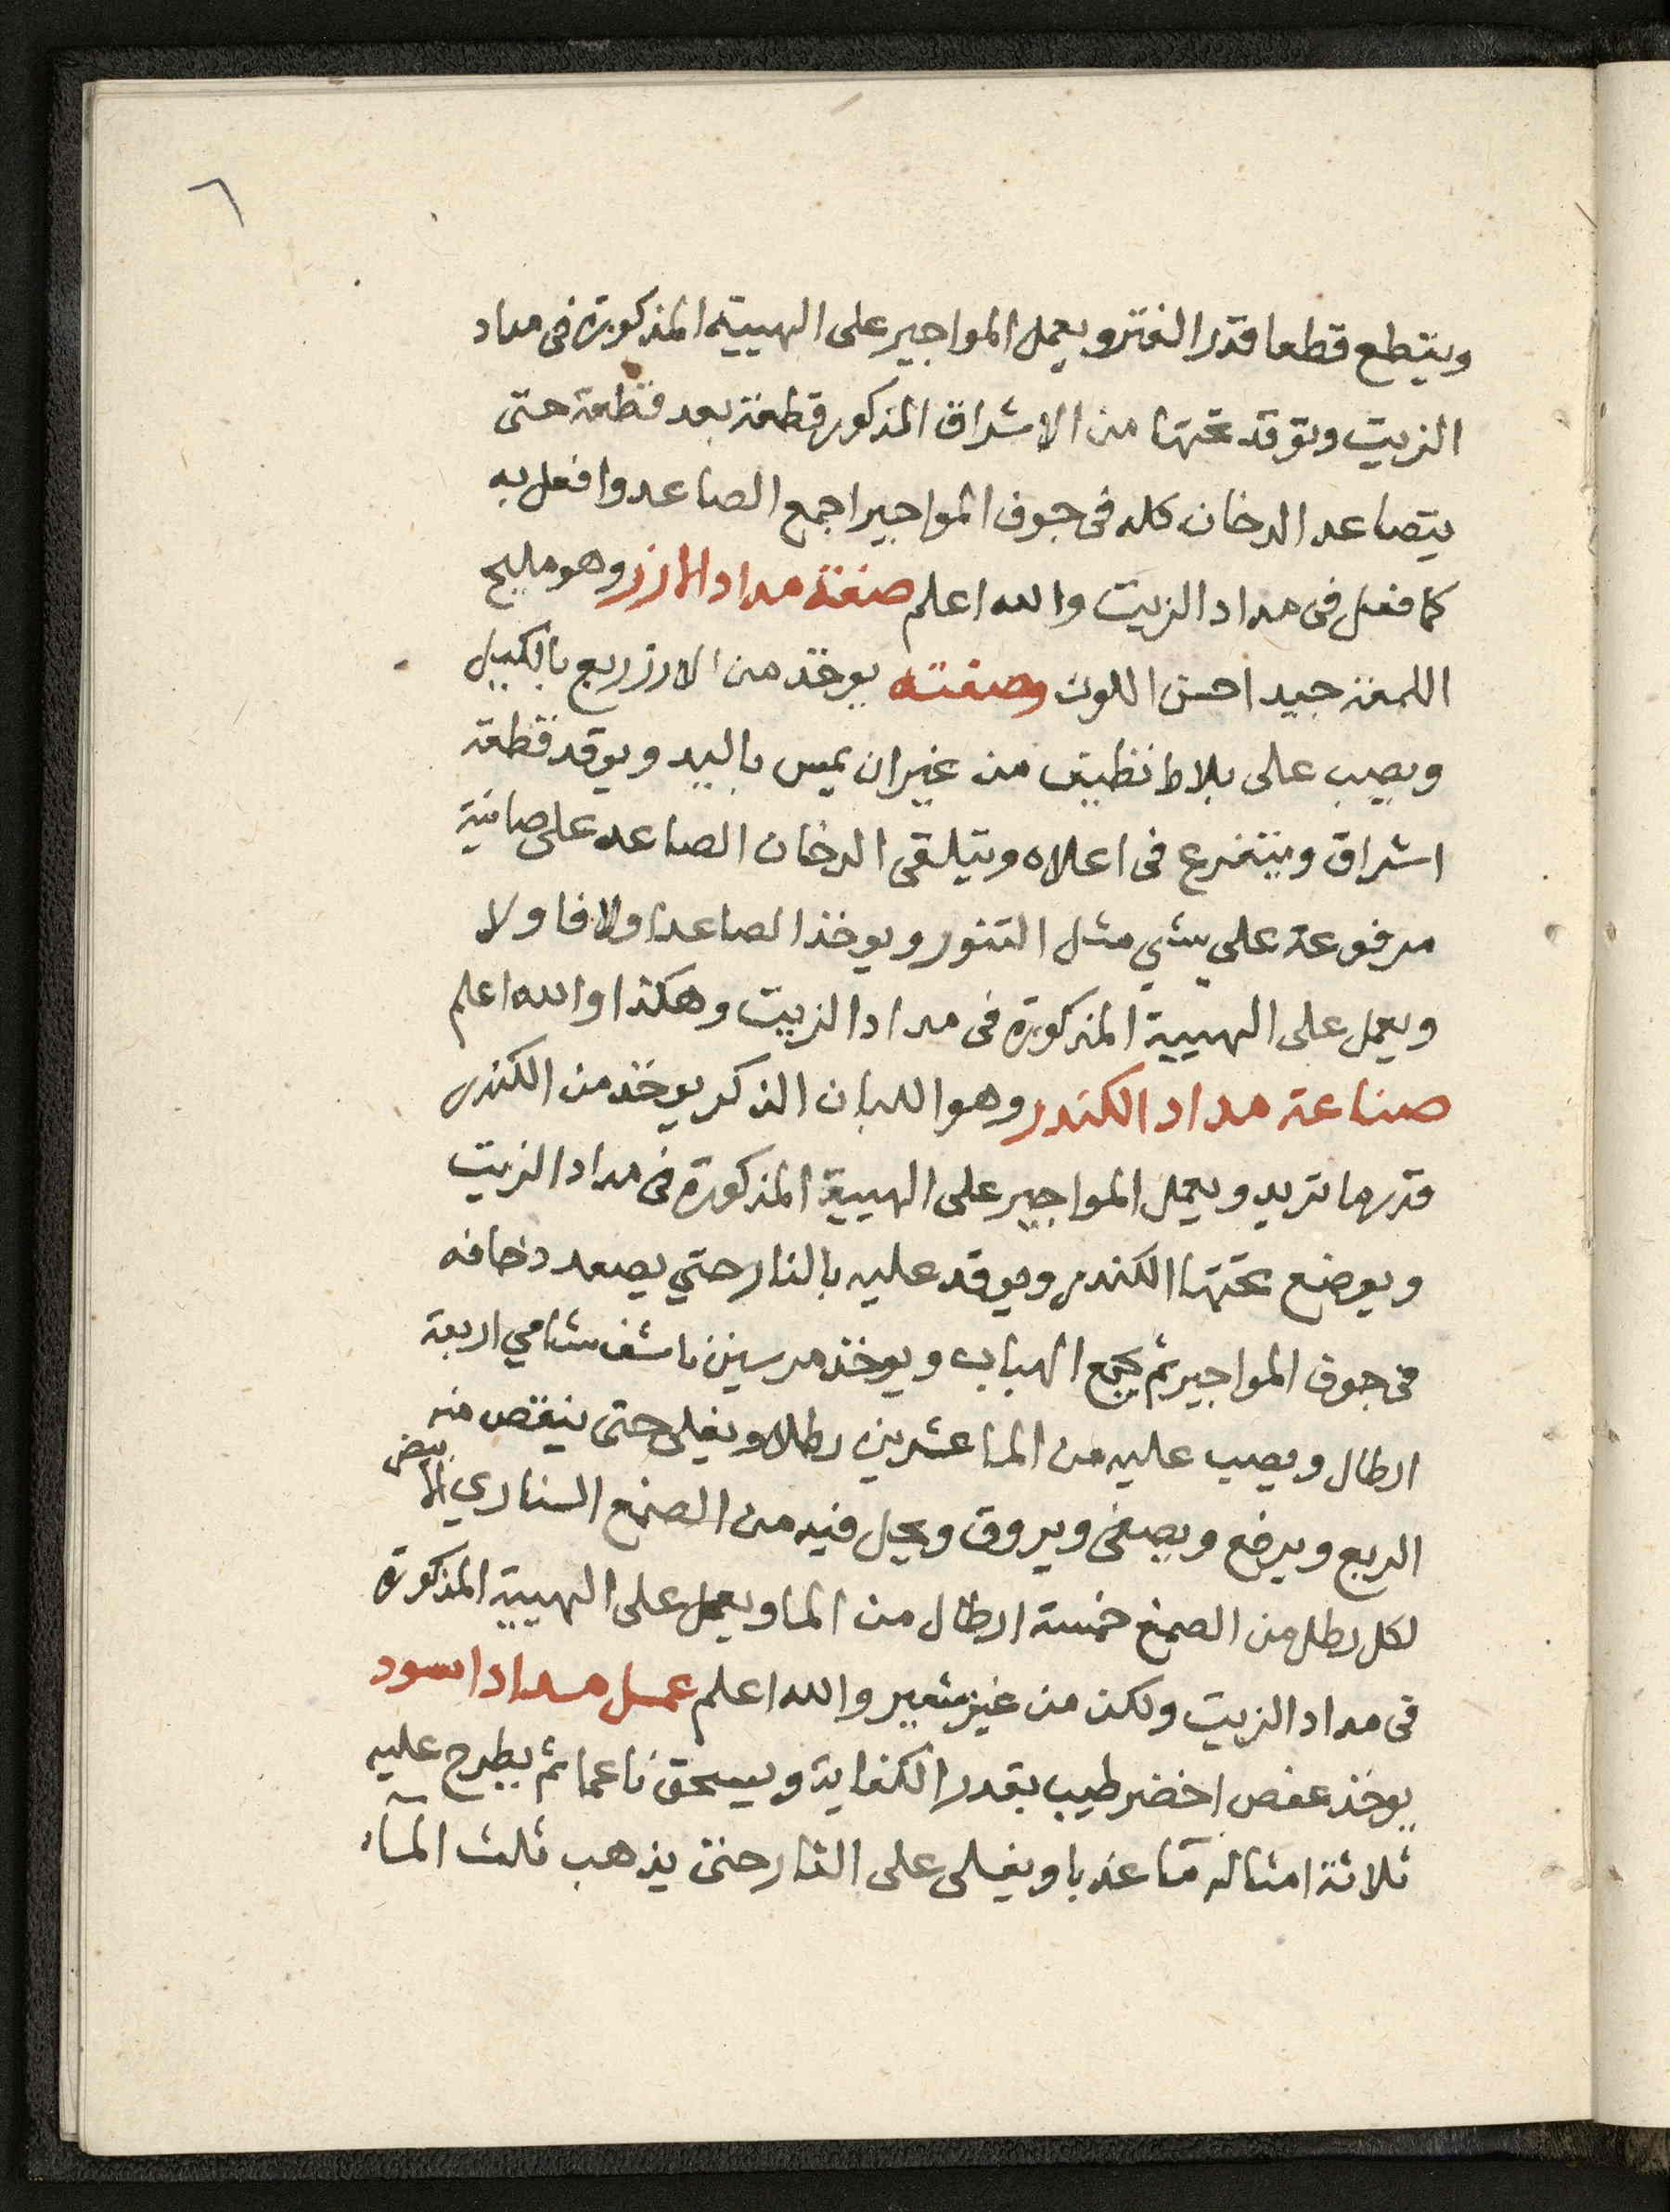 ٦
ويتطع قطعا قدر الفتر ويعمل المواجير على الهيية المذكورة فى مداد
الزيت وتوقد تحتها من الاشراق المذكور قطعة بعد قطعة حتى
يتصاعد الدخان كله فى جوف المواجير اجمع الصاعد وافعل به
كما فعل فى مداد الزيت والله اعلم صفة مداد الارز وهو مليح
اللمعة جيد احسن اللون وصفته يوخذ من الارز ربع بالكيل
ويصب على بلاط نظيف من غير ان يمس باليد ويوقد قطعة
اشراق ويتفرع فى اعلاه ويتلقى الدخان الصاعد على صانية
مرفوعة على شي مثل التنور ويوخذ الصاعد اولا فاولا
ويعمل على الهيية المذكورة فى مداد الزيت وهكذا والله اعلم
صناعة مداد الكندر وهو اللبان الذكر يوخذ من الكندر
قدر ما تريد ويعمل المواجير على الهيية المذكورة فى مداد الزيت
ويوضع تحتها الكندر ويوقد عليه بالنار حتي يصعد دخانه
فى جوف المواجير ثم يجمع الهباب ويوخذ مرسين ناشف شامي اربعة
ارطال ويصب عليه من الما عشرين رطلا ويغلى حتى ينقص منه
الربع ويرفع ويصفى ويروق ويحل فيه من الصمغ السناري الابيض
لكل رطل من الصمغ خمسة ارطال من الما ويعمل على الهيية المذكورة
فى مداد الزيت ولكن من غير شعير والله اعلم عمل مداد اسود
يوخذ عفص اخضر طيب بقدر الكفاية ويسحق ناعما ثم يطرح عليه
ثلاثة امثاله مآ عذبا ويغلى على النار حتى يذهب ثلث المآء